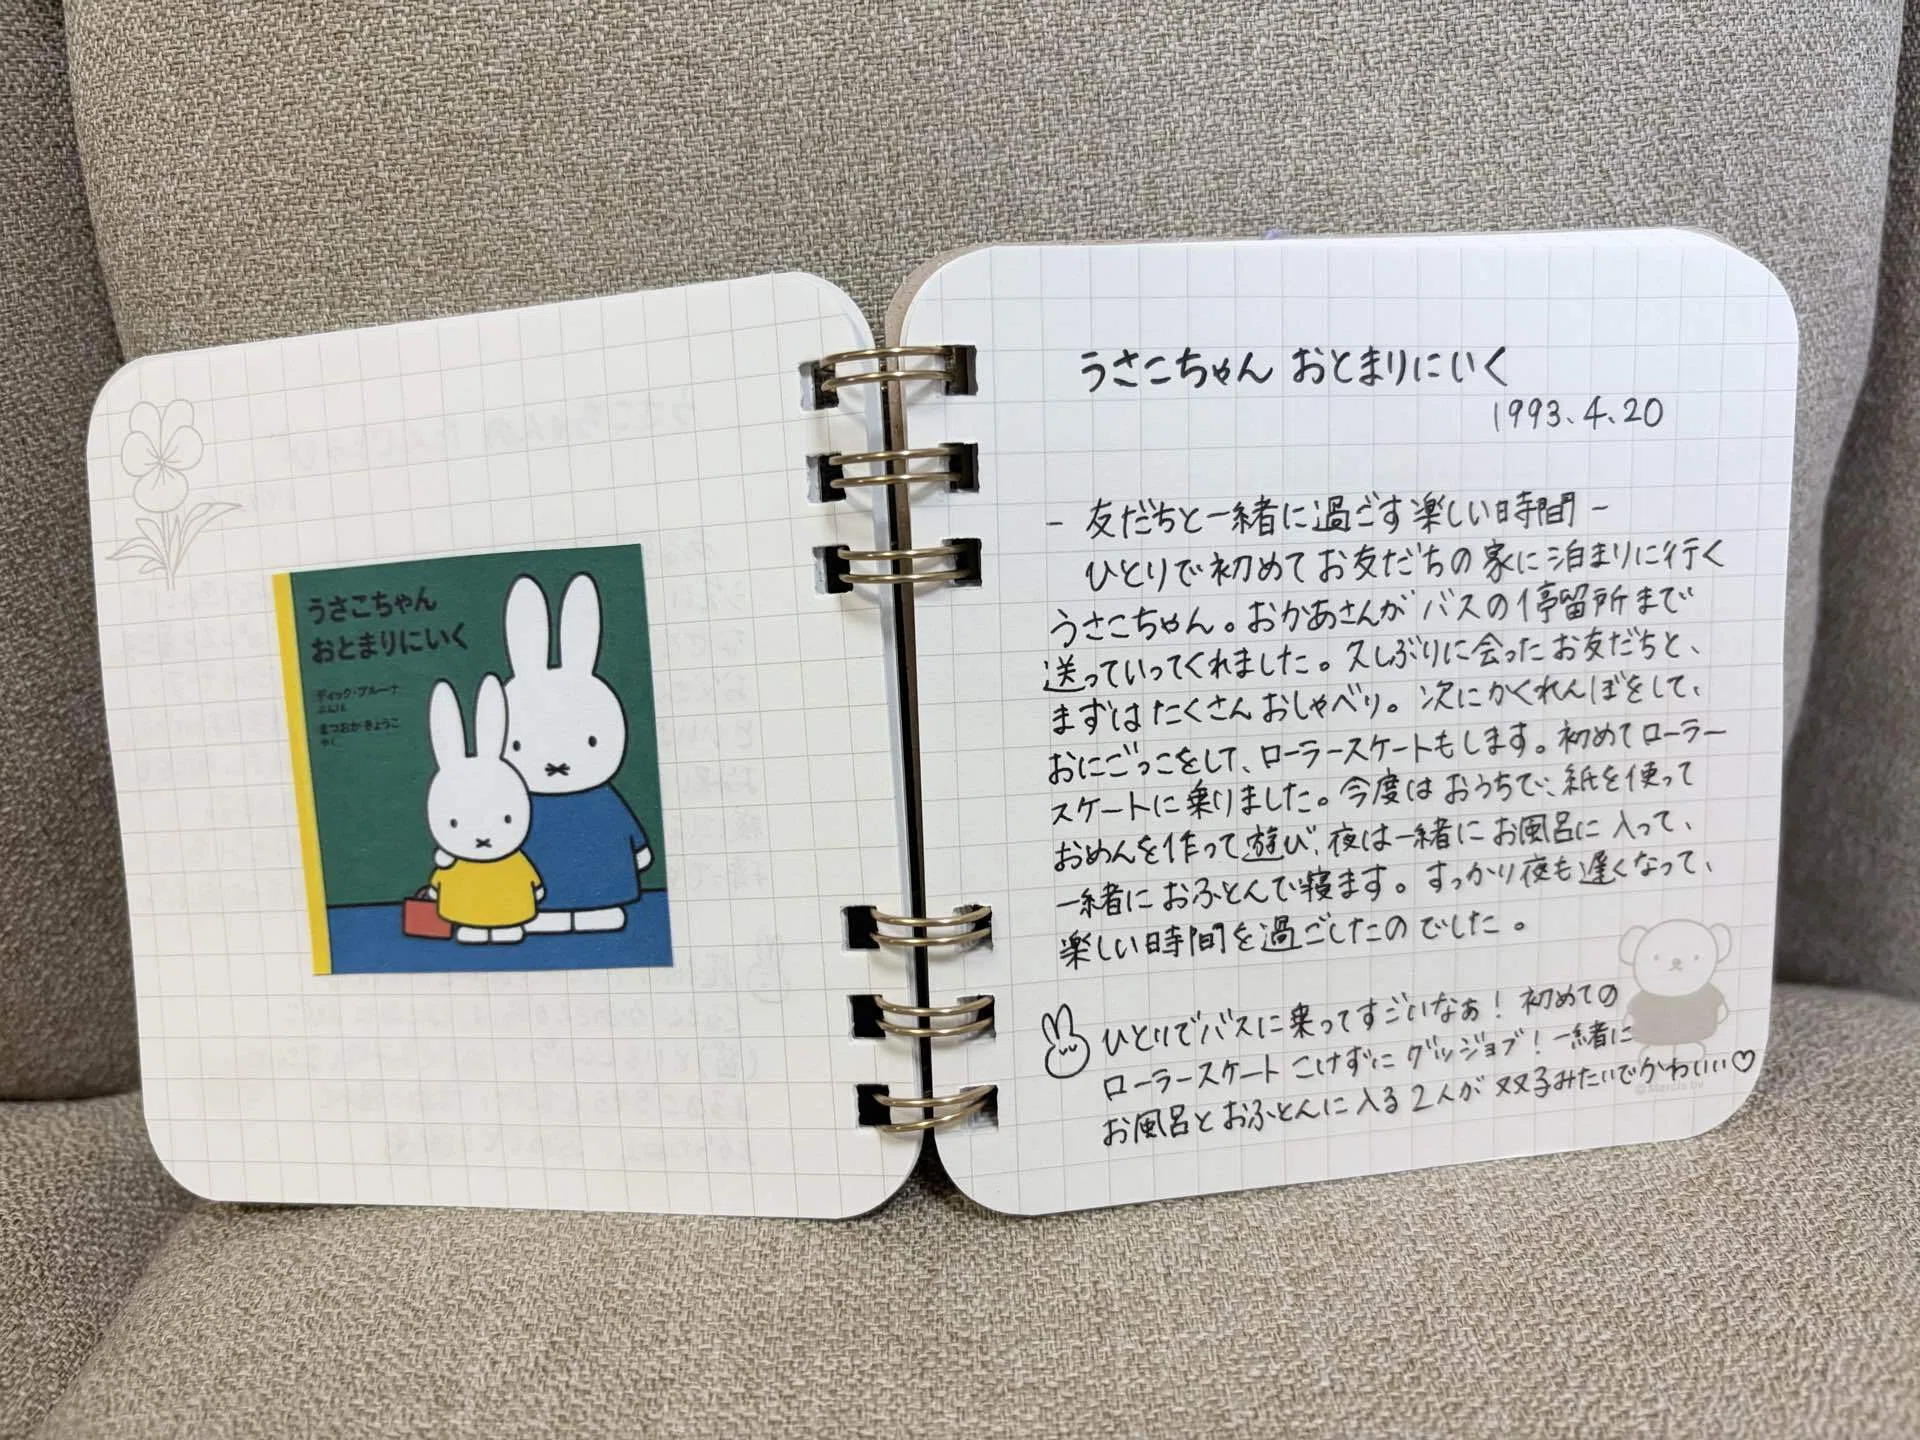 うさこちゃん
おとまりにいく
ディック・ブルーナ
ぶん/え
まつおか きょうこ
やく
うさこちゃん おとまりにいく
1993.4.20
- 友だちと一緒に過ごす楽しい時間 -
ひとりで初めてお友だちの家に泊まりに行く
うさこちゃん。おかあさんがバスの停留所まで
送っていってくれました。久しぶりに会ったお友だちと、
まずはたくさんおしゃべり。次にかくれんぼをして、
おにごっこをして、ローラースケートもします。初めてローラー
スケートに乗りました。今度はおうちで、紙を使って
おめんを作って遊び、夜は一緒にお風呂に入って、
一緒におふとんで寝ます。すっかり夜も遅くなって、
楽しい時間を過ごしたのでした。
ひとりでバスに乗ってすごいなぁ！初めての
ローラースケートこけずにグッジョブ！一緒に
お風呂とおふとんに入る2人が双子みたいでかわいい♡